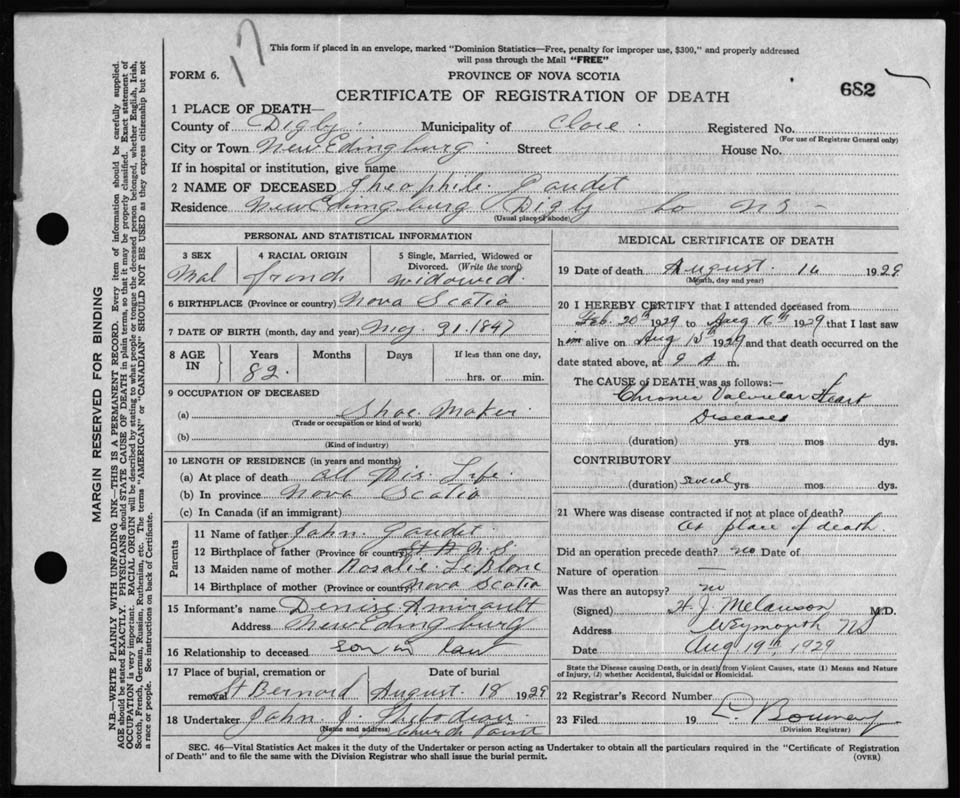 17
This form if placed in an envelope, marked "Dominion Statistics—Free, penalty for improper use, $300," and properly addressed
will pass through the Mail "FREE"
FORM 6.
PROVINCE OF NOVA SCOTIA
682
CERTIFICATE OF REGISTRATION OF DEATH
1 PLACE OF DEATH—
County of Digby Municipality of Clare Registered No.
(For use of Registrar General only)
City or Town New Edingburg Street House No.
If in hospital or institution, give name
2 NAME OF DECEASED Theophile Gaudet
Residence New Edingburg Digby Co NS
(Usual place of abode)
PERSONAL AND STATISTICAL INFORMATION
3 SEX 4 RACIAL ORIGIN 5 Single, Married, Widowed or
Divorced. (Write the word)
Mal french widowed
6 BIRTHPLACE (Province or country) Nova Scotia
7 DATE OF BIRTH (month, day and year) 1847
8 AGE IN Years Months Days If less than one day,
82 hrs. or min.
9 OCCUPATION OF DECEASED
(a) Shoe Maker
(Trade or occupation or kind of work)
(b)
(Kind of industry)
10 LENGTH OF RESIDENCE (in years and months)
(a) At place of death all his Life
(b) In province Nova Scotia
(c) In Canada (if an immigrant)
Parents
11 Name of father John Gaudet
12 Birthplace of father (Province or country) N S
13 Maiden name of mother Rosalie LeBlanc
14 Birthplace of mother (Province or country) Nova Scotia
15 Informant's name Denise Amirault
Address New Edingburg
16 Relationship to deceased son in law
17 Place of burial, cremation or Date of burial
removal St Bernard August 18 1929
18 Undertaker John J. Thibodeau
(Name and address) Church Point
MEDICAL CERTIFICATE OF DEATH
19 Date of death August 16 1929
(Month, day and year)
20 I HEREBY CERTIFY that I attended deceased from
Feb. 20th 1929 to Aug 16th 1929 that I last saw
him alive on Aug 15th 1929 and that death occurred on the
date stated above, at 9 A m.
The CAUSE OF DEATH was as follows:—
Chronic Valvular Heart
Disease
(duration) yrs. mos. dys.
CONTRIBUTORY
(duration) several yrs mos. dys.
21 Where was disease contracted if not at place of death?
At place of death
Did an operation precede death? no Date of
Nature of operation —
Was there an autopsy? no
(Signed) M.D.
Address Weymouth NS
Date Aug 19th 1929
State the Disease causing Death, or in death from Violent Causes, state (1) Means and Nature
of Injury, (2) whether Accidental, Suicidal or Homicidal.
22 Registrar's Record Number
23 Filed 19
(Division Registrar)
SEC. 46—Vital Statistics Act makes it the duty of the Undertaker or person acting as Undertaker to obtain all the particulars required in the "Certificate of Registration
of Death" and to file the same with the Division Registrar who shall issue the burial permit.
(OVER)
MARGIN RESERVED FOR BINDING
N.B.—WRITE PLAINLY WITH UNFADING INK—THIS IS A PERMANENT RECORD. Every item of information should be carefully supplied.
AGE should be stated EXACTLY. PHYSICIANS should STATE CAUSE OF DEATH in plain terms, so that it may be properly classified. Exact statement of
OCCUPATION is very important. RACIAL ORIGIN will be described by stating to what people or tongue the deceased person belonged, whether English, Irish,
Scotch, French, German, Russian, Ruthenian, etc. The terms "AMERICAN" or "CANADIAN" SHOULD NOT BE USED as they express citizenship but not
a race or people. See instructions on back of Certificate.